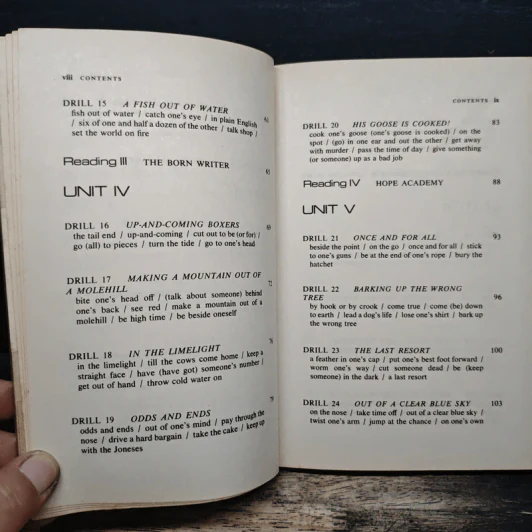 viii CONTENTS
DRILL 15 A FISH OUT OF WATER
fish out of water / catch one's eye / in plain English
/ six of one and half a dozen of the other / talk shop /
set the world on fire
Reading III THE BORN WRITER
UNIT IV
DRILL 16 UP-AND-COMING BOXERS
the tail end / up-and-coming / cut out to be (or for) /
go (all) to pieces / turn the tide / go to one's head
DRILL 17 MAKING A MOUNTAIN OUT OF
A MOLEHILL
bite one's head off / (talk about someone) behind
one's back / see red / make a mountain out of a
molehill / be high time / be beside oneself
DRILL 18 IN THE LIMELIGHT
in the limelight / till the cows come home / keep a
straight face / have (have got) someone's number /
get out of hand / throw cold water on
DRILL 19 ODDS AND ENDS
odds and ends / out of one's mind / pay through the
nose / drive a hard bargain / take the cake / keep up
with the Joneses
CONTENTS ix
DRILL 20 HIS GOOSE IS COOKED! 83
cook one's goose (one's goose is cooked) / on the
spot / (go) in one ear and out the other / get away
with murder / pass the time of day / give something
(or someone) up as a bad job
Reading IV HOPE ACADEMY 88
UNIT V
DRILL 21 ONCE AND FOR ALL 93
beside the point / on the go / once and for all / stick
to one's guns / be at the end of one's rope / bury the
hatchet
DRILL 22 BARKING UP THE WRONG
TREE 96
by hook or by crook / come true / come (be) down
to earth / lead a dog's life / lose one's shirt / bark up
the wrong tree
DRILL 23 THE LAST RESORT 100
a feather in one's cap / put one's best foot forward /
worm one's way / cut someone dead / be (keep
someone) in the dark / a last resort
DRILL 24 OUT OF A CLEAR BLUE SKY 103
on the nose / take time off / out of a clear blue sky /
twist one's arm / jump at the chance / on one's own